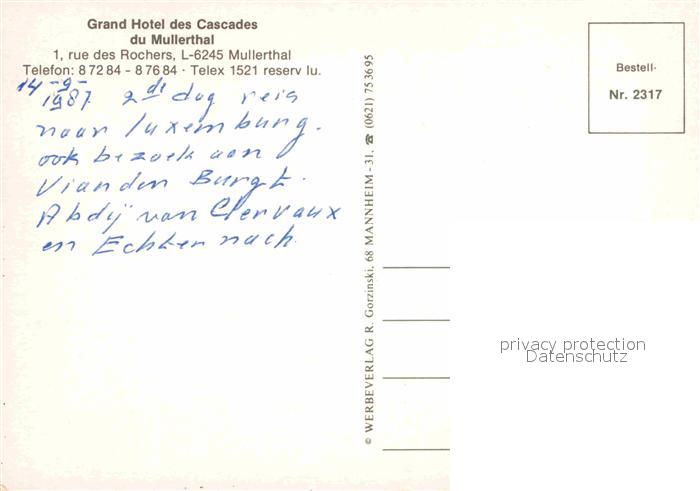 Grand Hotel des Cascades
du Mullerthal
1, rue des Rochers, L-6245 Mullerthal
Telefon: 8 72 84 - 8 76 84 · Telex 1521 reserv lu.
14-9-
1987. 2de dag reis
naar luxemburg.
ook bezoek aan
Vianden Burgt.
Abdij van Clervaux
en Echternach.
© WERBEVERLAG R. Gorzinski, 68 MANNHEIM-31, ☎ (0621) 75 36 95
Bestell-
Nr. 2317
privacy protection
Datenschutz